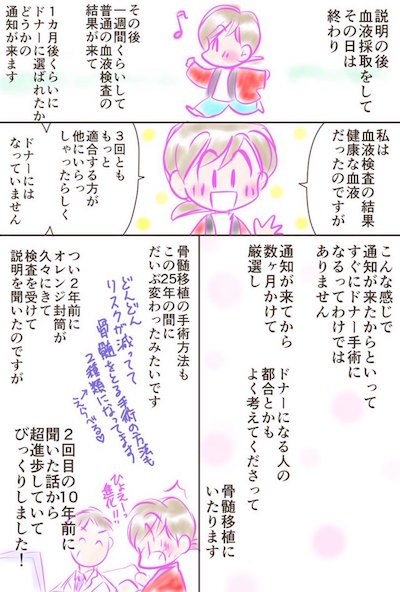 説明の後
血液採取をして
その日は
終わり
その後
一週間くらいして
普通の血液検査の
結果が来て
1カ月後くらいに
ドナーに選ばれたか
どうかの
通知が来ます
私は
血液検査の結果
健康な血液
だったのですが
3回とも
もっと
適合する方が
他にいらっ
しゃったらしく
ドナーには
なっていません
こんな感じで
通知が来たからといって
すぐにドナー手術に
なるってわけでは
ありません
通知が来てから
数ヶ月かけて
厳選し
ドナーになる人の
都合とかも
よく考えてくださって
骨髄移植に
いたります
骨髄移植の手術方法も
この25年の間に
だいぶ変わったみたいです
どんどん
リスクが減ってて
骨髄をとる手術の方法も
2種類になってます
えらべる
つい2年前に
オレンジ封筒が
久々にきて
検査を受けて
説明を聞いたのですが
2回目の10年前に
聞いた話から
超進歩していて
びっくりしました!
ひょえーっ
進化!!